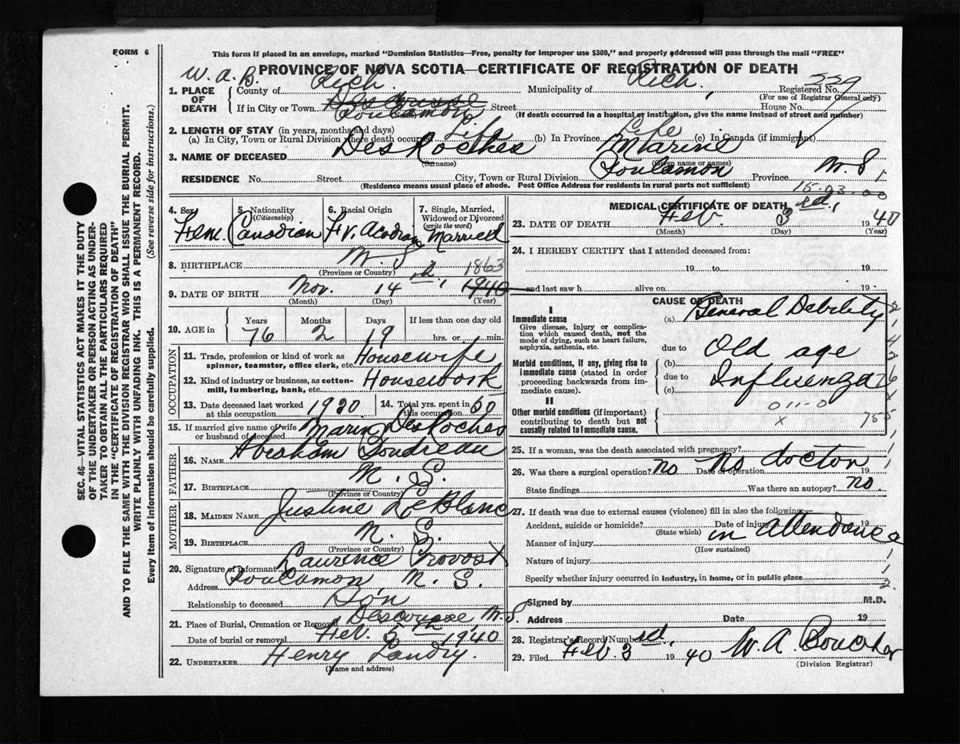 FORM 6
This form if placed in an envelope, marked "Dominion Statistics—Free, penalty for improper use $300," and properly addressed will pass through the mail "FREE"
W. A. B.
PROVINCE OF NOVA SCOTIA—CERTIFICATE OF REGISTRATION OF DEATH
1. PLACE OF DEATH County of Rich. Municipality of Rich. Registered No. 559
(For use of Registrar General only)
If in City or Town Descousse Poulamon Street House No.
(If death occurred in a hospital or institution, give the name instead of street and number)
2. LENGTH OF STAY (in years, months and days)
(a) In City, Town or Rural Division where death occurred Life (b) In Province Life (c) In Canada (if immigrant)
3. NAME OF DECEASED DesRoches Marine
(Surname) (Given name or names)
RESIDENCE No. Street City, Town or Rural Division Poulamon Province N. S.
(Residence means usual place of abode. Post Office Address for residents in rural parts not sufficient)
4. Sex 5. Nationality (Citizenship) 6. Racial Origin 7. Single, Married, Widowed or Divorced (write the word)
Fem. Canadian Fr. Acadian Married
8. BIRTHPLACE N. S.
(Province or Country)
9. DATE OF BIRTH Nov. 14th, 1940 1863
(Month) (Day) (Year)
10. AGE in Years Months Days If less than one day old
76 2 19 hrs. or min.
OCCUPATION
11. Trade, profession or kind of work as spinner, teamster, office clerk, etc. Housewife
12. Kind of industry or business, as cotton-mill, lumbering, bank, etc. Housework
13. Date deceased last worked at this occupation 1920. 14. Total yrs. spent in this occupation 50
15. If married give name of wife or husband of deceased Marin DesRoches
FATHER
16. Name Abraham Boudreau
17. Birthplace N. S.
(Province or Country)
MOTHER
18. Maiden Name Justine LeBlanc
19. Birthplace N. S.
(Province or Country)
20. Signature of Informant Laurence Provost
Address Poulamon N. S.
Relationship to deceased Son
21. Place of Burial, Cremation or Removal Descousse N. S.
Date of burial or removal Feb. 5th 1940
22. Undertaker Henry Landry.
(Name and address)
MEDICAL CERTIFICATE OF DEATH
23. DATE OF DEATH Feb. 3rd, 1940
(Month) (Day) (Year)
24. I HEREBY CERTIFY that I attended deceased from:
19 to 19
and last saw h alive on 19
CAUSE OF DEATH
I
Immediate cause
Give disease, injury or complication which caused death, not the mode of dying, such as heart failure, asphyxia, asthenia, etc.
(a) General Debility
due to
Morbid conditions, if any, giving rise to immediate cause (stated in order proceeding backwards from immediate cause).
(b) Old age
due to
(c) Influenza
II
Other morbid conditions (if important) contributing to death but not causally related to immediate cause.
25. If a woman, was the death associated with pregnancy?
26. Was there a surgical operation? no Date of operation 19
No doctor
State findings Was there an autopsy? no.
27. If death was due to external causes (violence) fill in also the following:
Accident, suicide or homicide? Date of injury 19
(State which)
in attendance
Manner of injury
(How sustained)
Nature of injury
Specify whether injury occurred in industry, in home, or in public place
Signed by M.D.
Address Date 19
28. Registrar's Record Number
29. Filed Feb. 3rd, 1940 W. A. Boucher
(Division Registrar)
SEC. 46—VITAL STATISTICS ACT MAKES IT THE DUTY OF THE UNDERTAKER OR PERSON ACTING AS UNDERTAKER TO OBTAIN ALL THE PARTICULARS REQUIRED IN THE "CERTIFICATE OF REGISTRATION OF DEATH" AND TO FILE THE SAME WITH THE DIVISION REGISTRAR WHO SHALL ISSUE THE BURIAL PERMIT.
WRITE PLAINLY WITH UNFADING INK. THIS IS A PERMANENT RECORD.
Every item of information should be carefully supplied. (See reverse side for instructions.)